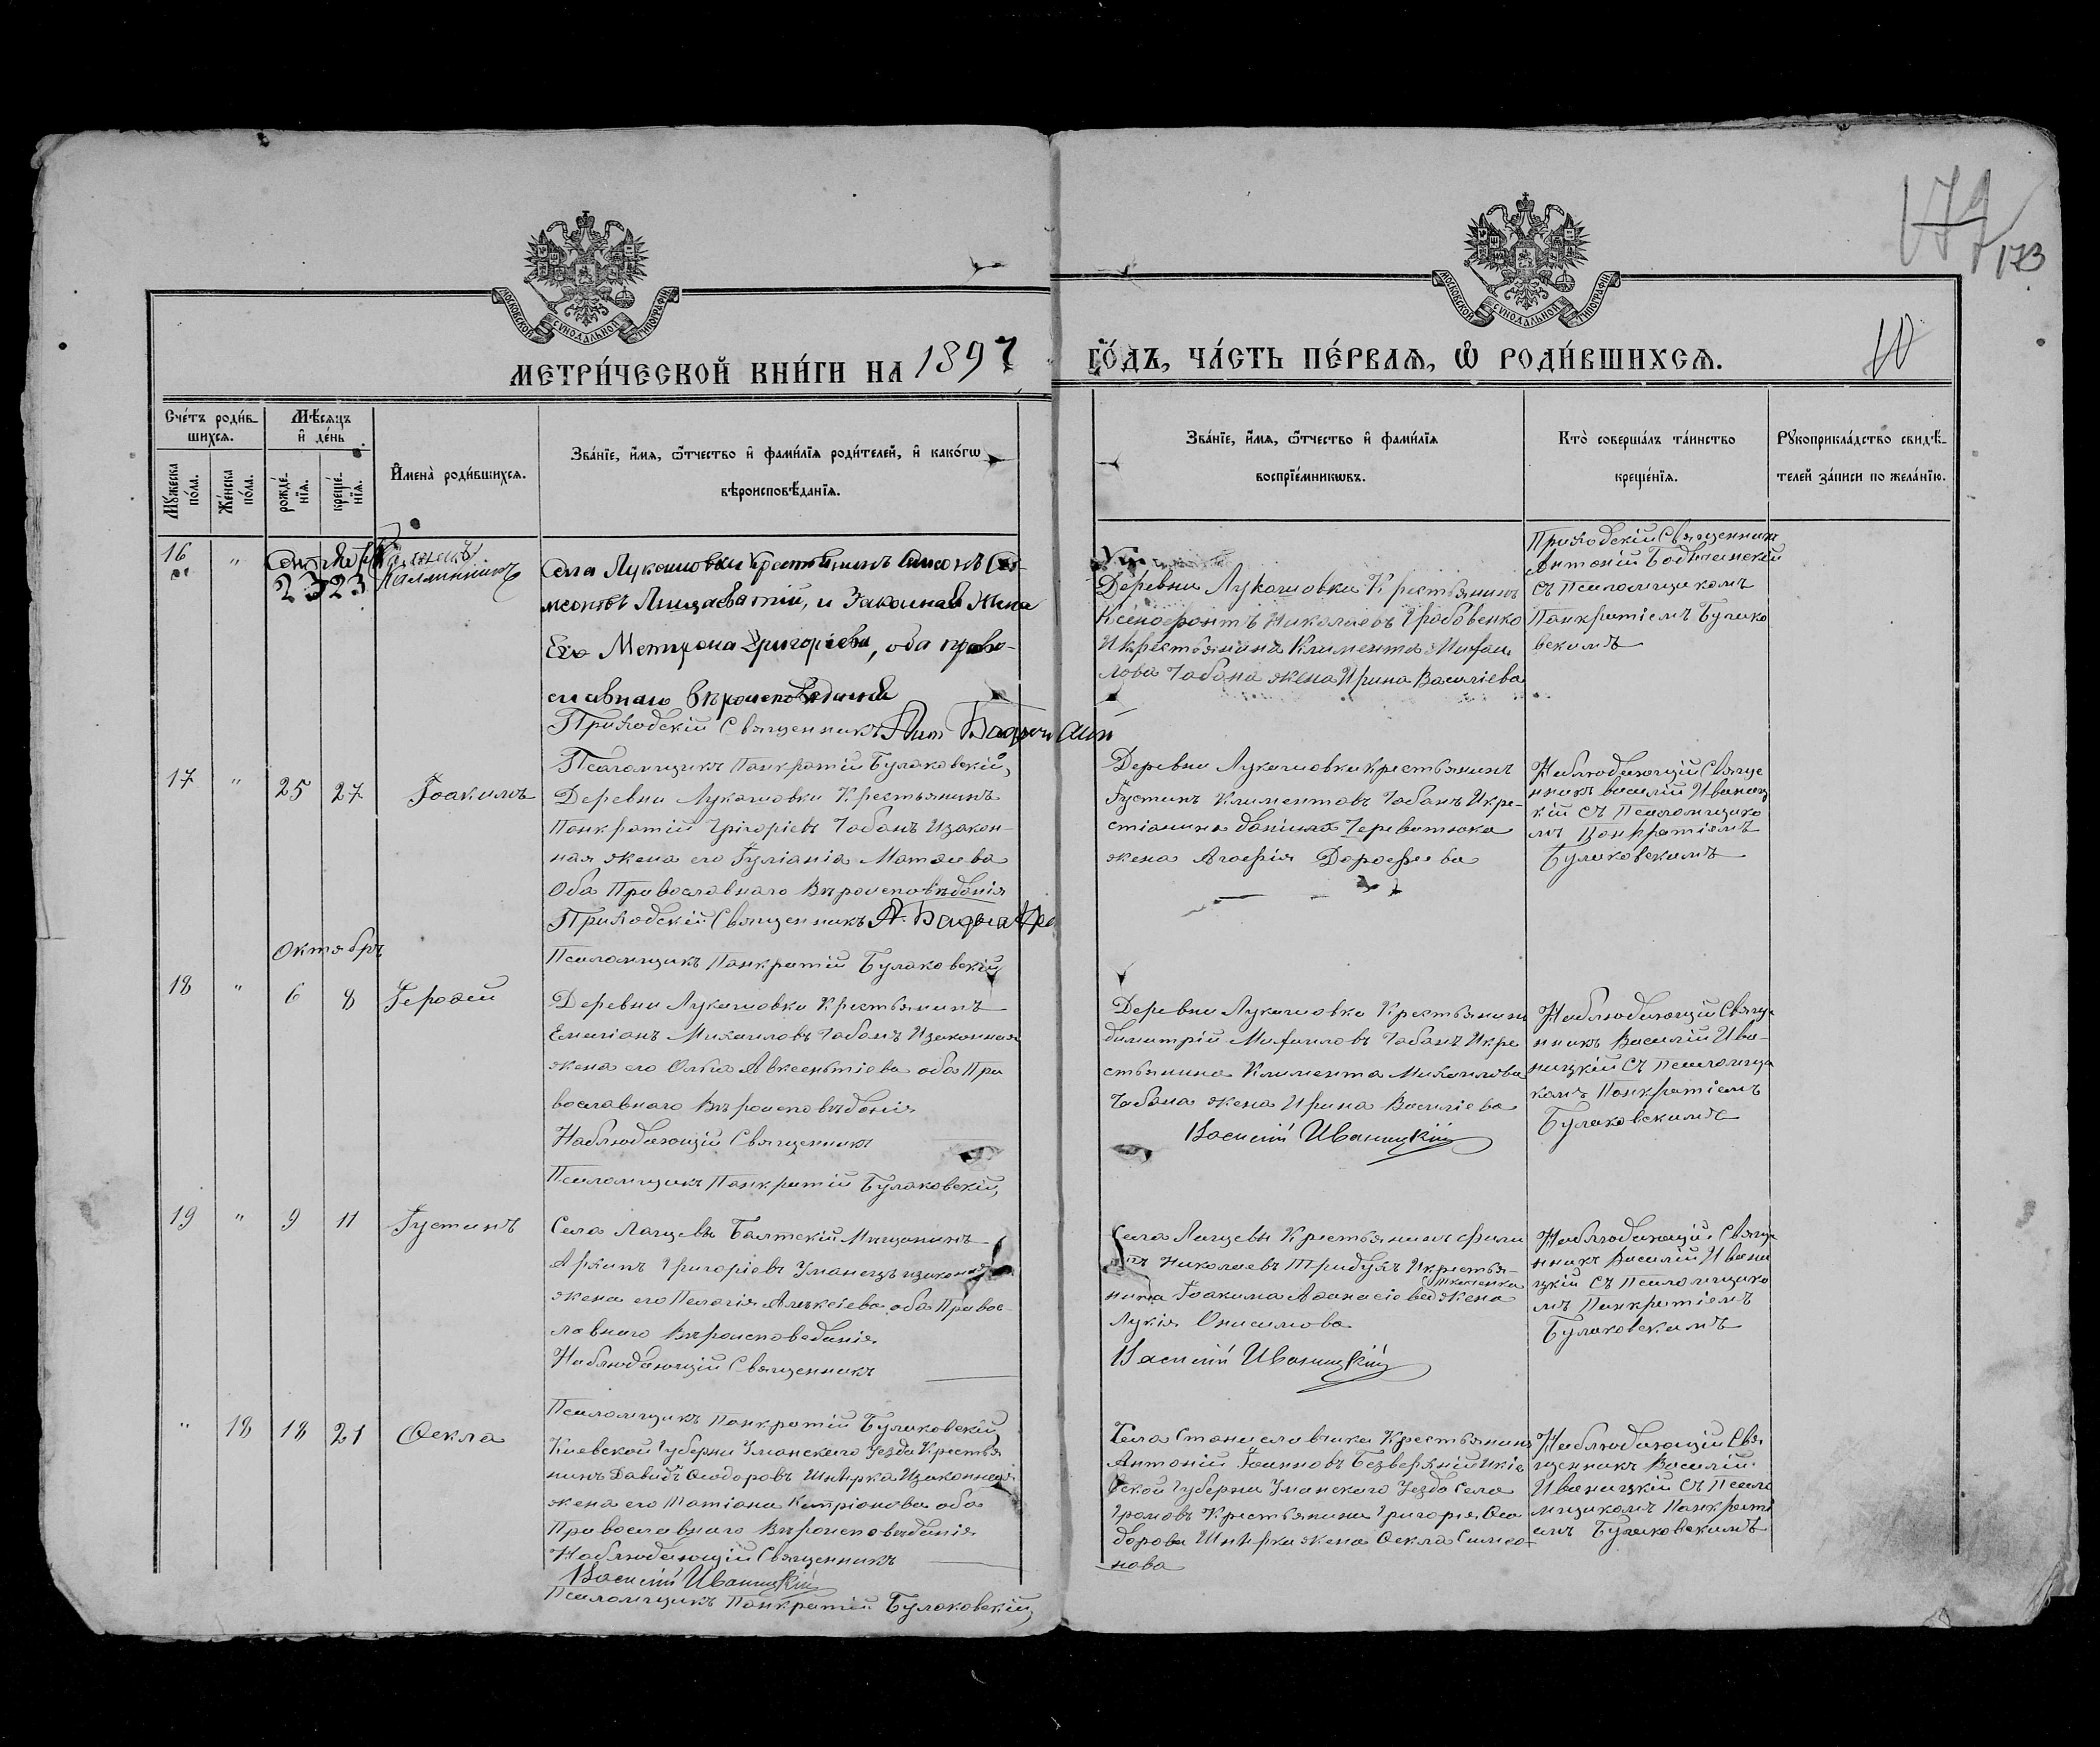 173
10
МОСКОВСКОЙ СѴНОДАЛЬНОЙ ТИПОГРАФІИ
МОСКОВСКОЙ СѴНОДАЛЬНОЙ ТИПОГРАФІИ
МЕТРИ́ЧЕСКОЙ КНИ́ГИ НА 1897 ГО́ДЪ, ЧА́СТЬ ПЕ́РВАѦ, Ѡ҆ РОДИ́ВШИХСѦ.
Сче́тъ роди́в-
шихсѧ.
Мѣ́сѧцъ
и҆ де́нь
Мꙋ́жеска
по́ла.
Же́нска
по́ла.
рожде́-
нїѧ.
креще́-
нїѧ.
И҆мена̀ роди́вшихсѧ.
Зва́нїе, и҆́мѧ, ѻ҆́тчество и҆ фами́лїѧ роди́телей, и҆ како́гѡ
вѣроисповѣ́данїѧ.
Зва́нїе, и҆́мѧ, ѻ҆́тчество и҆ фами́лїѧ
воспрїе́мникѡвъ.
Кто̀ соверша́лъ та́инство
креще́нїѧ.
Рꙋкоприкла́дство свидѣ́-
телей за́писи по жела́нїю.
16 " 23 23
Села Лукашовки Крестьянинъ
и Законная Жена
Его Матрона Григоріева, оба право-
славнаго вѣроисповѣданія
Приходскій Священникъ
Псаломщикъ Панкратій Булаковскій
Деревни Лукашовки Крестьянинъ
Ксенофонтъ Николаевъ Грабовенко
И крестьянина Климента Михаи
лова Чабана жена Ирина Василіева
Приходскій Священникъ
Антоній
съ Псаломщикомъ
Панкратіемъ Булако
вскимъ
17 " 25 27 Іоакимъ
Деревни Лукашовки Крестьянинъ
Панкратій Григоріевъ Чабанъ И закон-
ная жена его Іуліанія Матѳеева
Оба Православнаго Вѣроисповѣданія
Приходскій Священникъ А.
Псаломщикъ Панкратій Булаковскій
Деревни Лукашовки Крестьянинъ
Іустинъ Климентовъ Чабанъ И кре-
стіанина Даніила Череватюка
жена Агафія Дорофеева
Наблюдающій Свяще
нникъ Василій Иваниц
кій съ Псаломщико
мъ Панкратіемъ
Булаковскимъ
Октябрь
18 " 6 8 Іерофей
Деревни Лукашовки Крестьянинъ
Емиліанъ Михаиловъ Чабанъ И законная
жена его Ольга Авксентіева оба Пра
вославнаго Вѣроисповѣданія
Наблюдающій Священникъ
Псаломщикъ Панкратій Булаковскій
Деревни Лукашовки Крестьянинъ
Димитрій Михаиловъ Чабанъ И кре
стьянина Климента Михаилова
Чабана жена Ирина Василіева
Василій Иваницкій
Наблюдающій Свяще
нникъ Василій Ива-
ницкій съ Псаломщи
комъ Панкратіемъ
Булаковскимъ
19 " 9 11 Іустинъ
Села Балтскій Мѣщанинъ
Архипъ Григоріевъ Уманецъ и законная
жена его Пелагія Алексіева оба Правос-
лавнаго Вѣроисповеданія
Наблюдающій Священникъ
Псаломщикъ Панкратій Булаковскій
Села Крестьянинъ Фили
ппъ Николаевъ И крестья-
нина Іоакима Аѳанасіева жена
Лукія Онисимова
Василій Иваницкій
Наблюдающій Свяще
нникъ Василій Ивани
цкій съ Псаломщико
мъ Панкратіемъ
Булаковскимъ
" 18 18 21 Ѳекла
Кіевской Губерніи Уманскаго Уезда Крестья
нинъ Давидъ Ѳеодоровъ И законная
жена его Татіана Кипріанова оба
Православнаго Вѣроисповѣданія
Наблюдающій Священникъ
Василій Иваницкій
Псаломщикъ Панкратій Булаковскій
Села Станиславчика Крестьянинъ
Антоній Іоанновъ И Кіе
вской Губерніи Уманскаго Уезда Села
Громовъ Крестьянина Григорія Ѳео
дорова жена Ѳекла Симео
нова
Наблюдающій Свя
щенникъ Василій
Иваницкій съ Псало
мщикомъ Панкраті
емъ Булаковскимъ